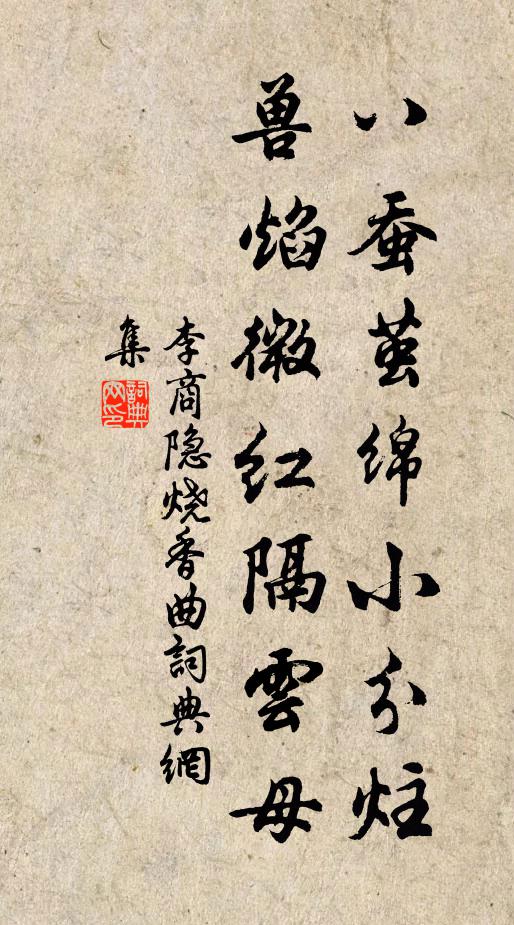 八蚕茧绵小分炷
兽焰微红隔雲母
李商隐烧香曲詞典網
集
詞典网印